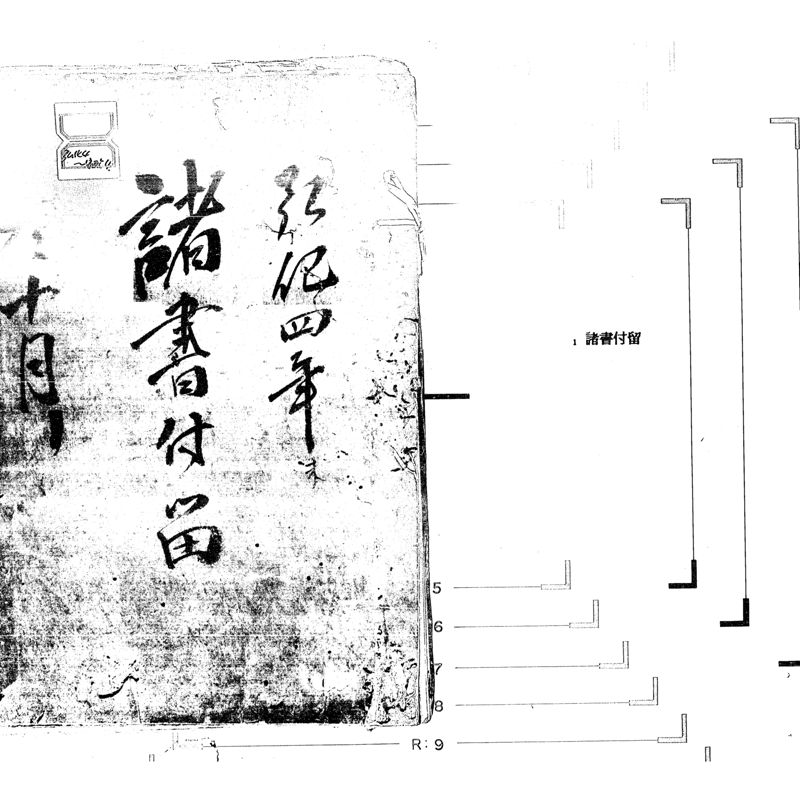 弘化四年
未
諸書付留
十月
1 諸書付留
5
6
7
8
R: 9